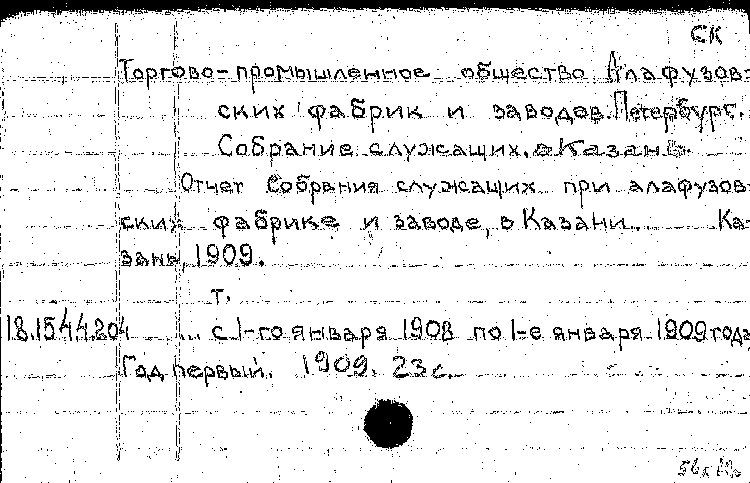 СК
Торгово-промышленное общество Алафузов-
ских фабрик и заводов. Петербург.
Собрание служащих. Казань.
Отчет Собрания служащих при алафузов-
ских фабрике и заводе, в Казани. Ка-
зань, 1909.
т.
18.154.4.204 ... с 1-го января 1908 по 1-е января 1909 года
Год первый. 1909. 23 с.